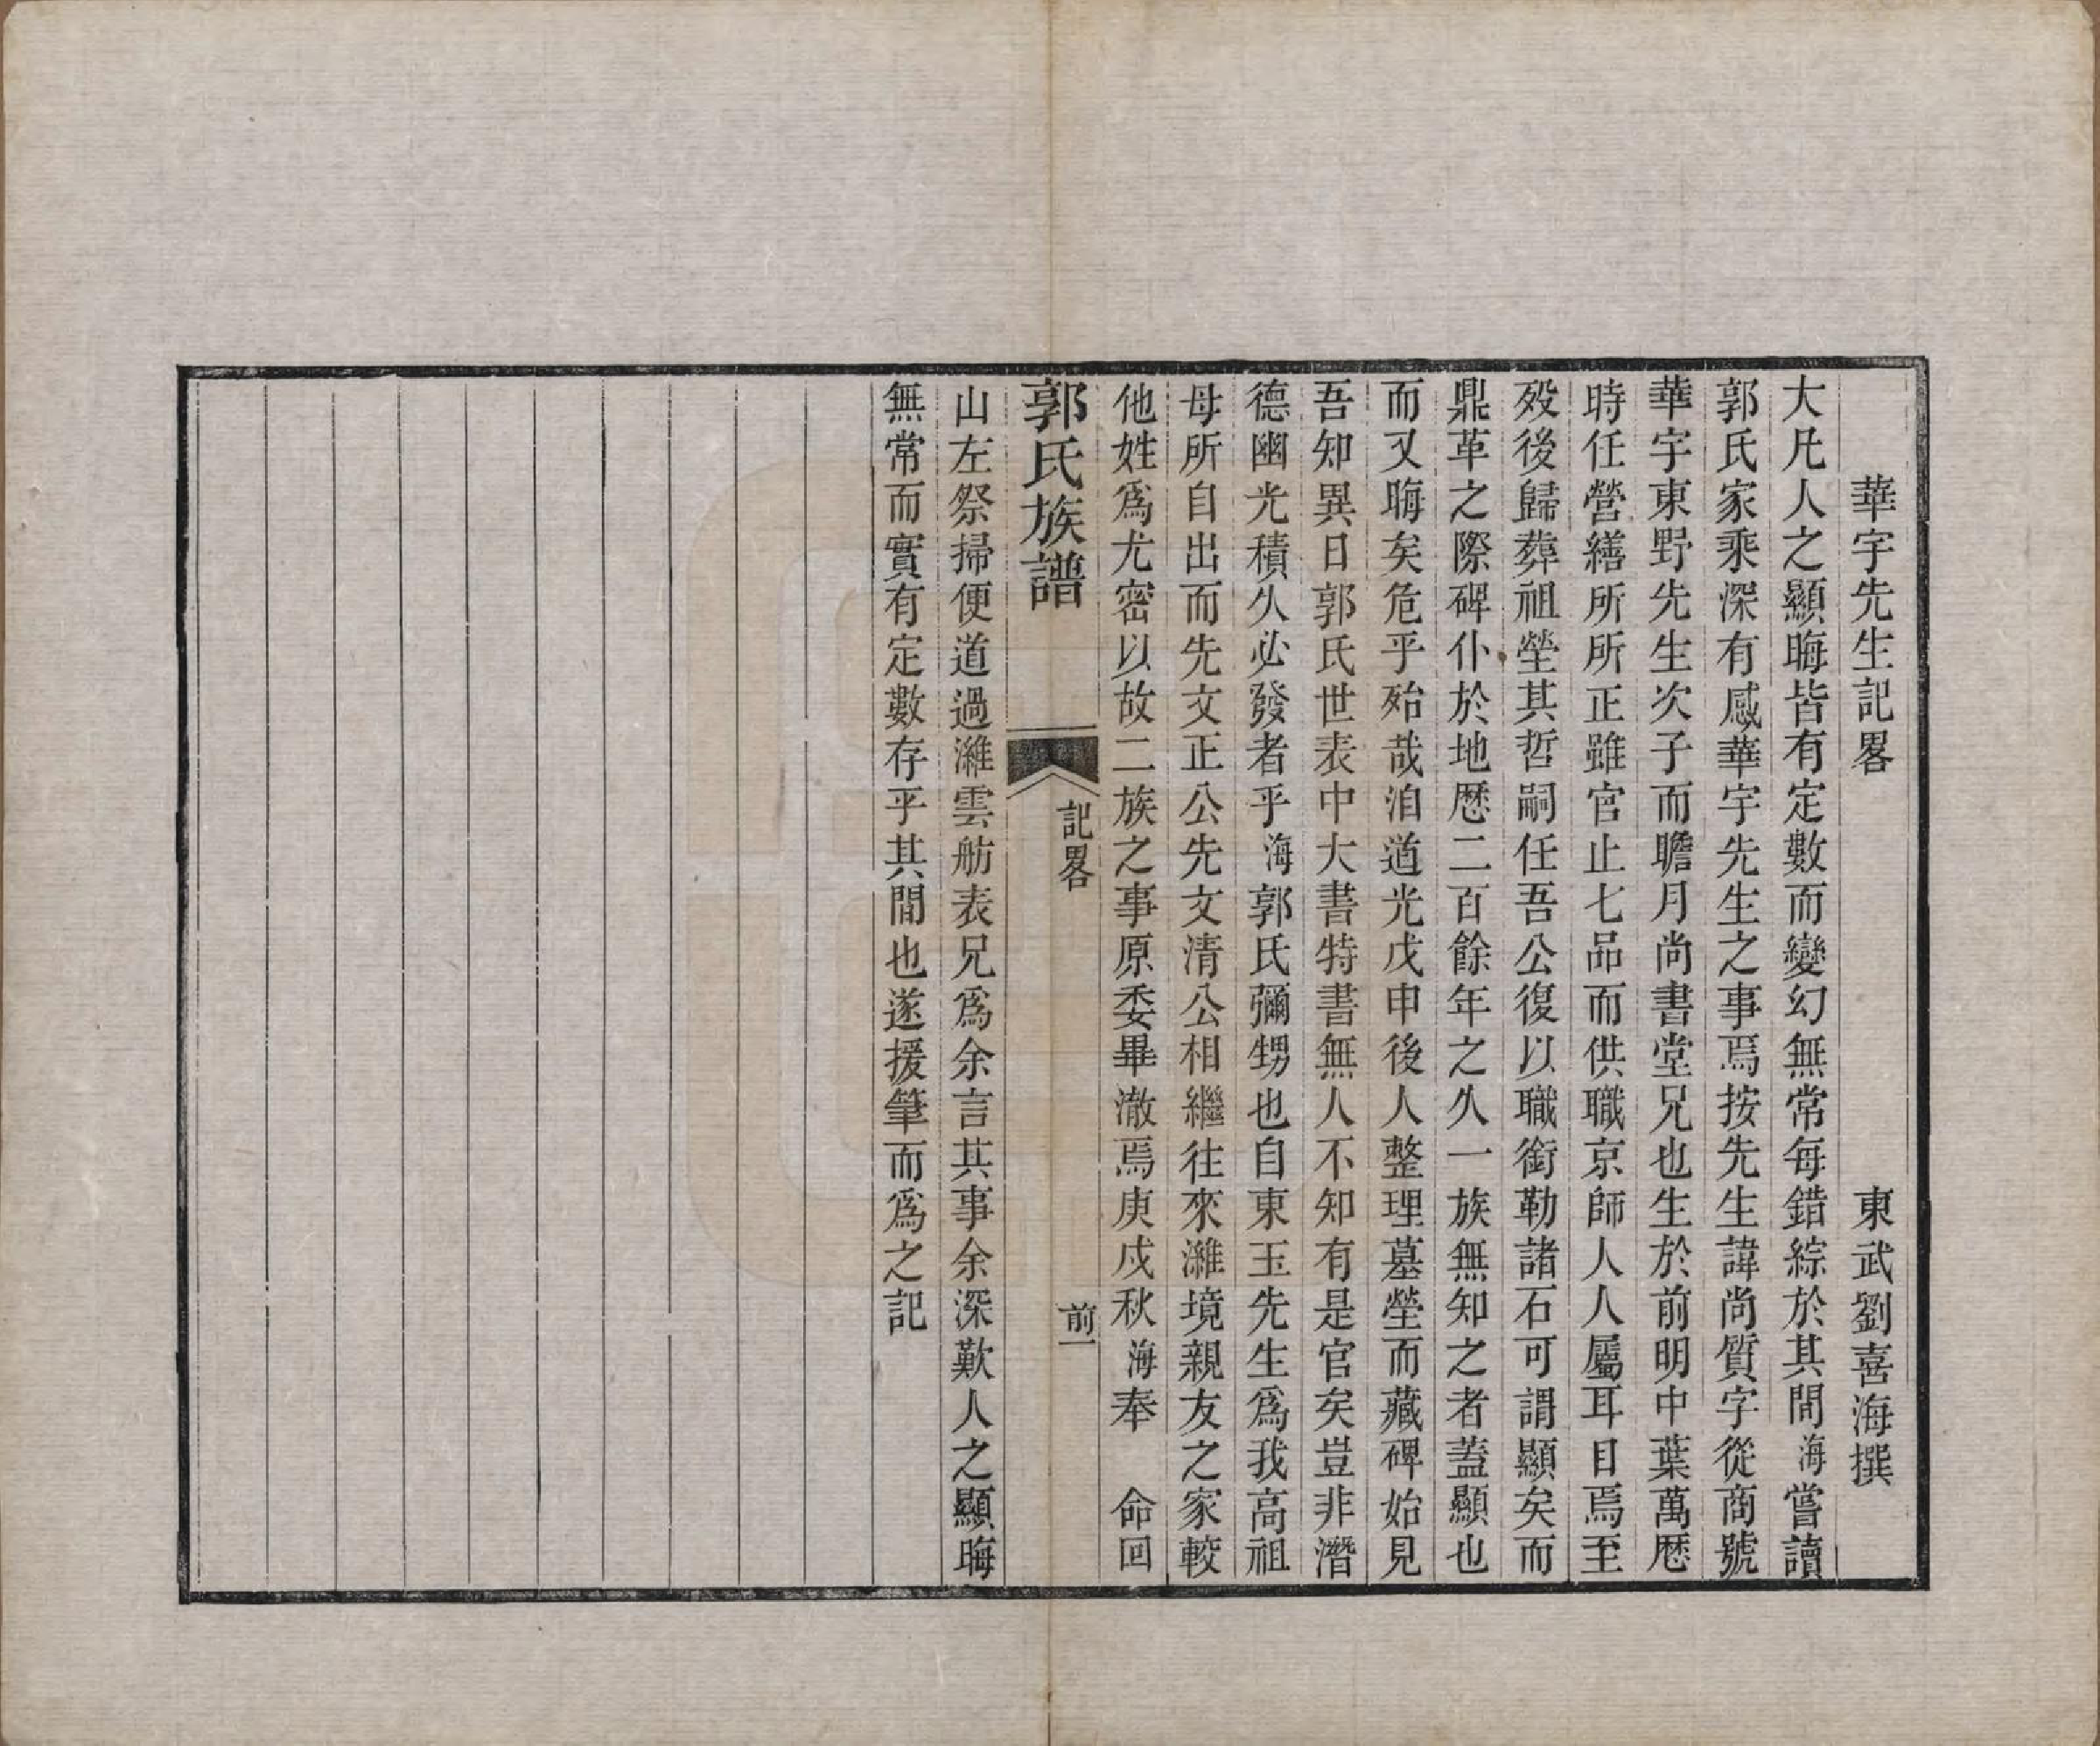 華宇先生記畧　東武劉喜海撰
大凡人之顯晦皆有定數而變幻無常每錯綜於其間海嘗讀
郭氏家乘深有感華宇先生之事焉按先生諱尚質字從商號
華宇東野先生次子而瞻月尚書堂兄也生於前明中葉萬歷
時任營繕所所正雖官止七品而供職京師人人屬耳目焉至
歿後歸葬祖塋其哲嗣任吾公復以職銜勒諸石可謂顯矣而
鼎革之際碑仆於地歷二百餘年之久一族無知之者蓋顯也
而又晦矣危乎殆哉洎道光戊申後人整理墓塋而藏碑始見
吾知異日郭氏世表中大書特書無人不知有是官矣豈非潛
德幽光積久必發者乎海郭氏彌甥也自東玉先生為我高祖
母所自出而先文正公先文清公相繼往來濰境親友之家較
他姓為尤密以故二族之事原委畢澈焉庚戌秋海奉　命回
郭氏族譜
記畧
前一
山左祭掃便道過濰雲舫表兄為余言其事余深歎人之顯晦
無常而實有定數存乎其間也遂援筆而為之記